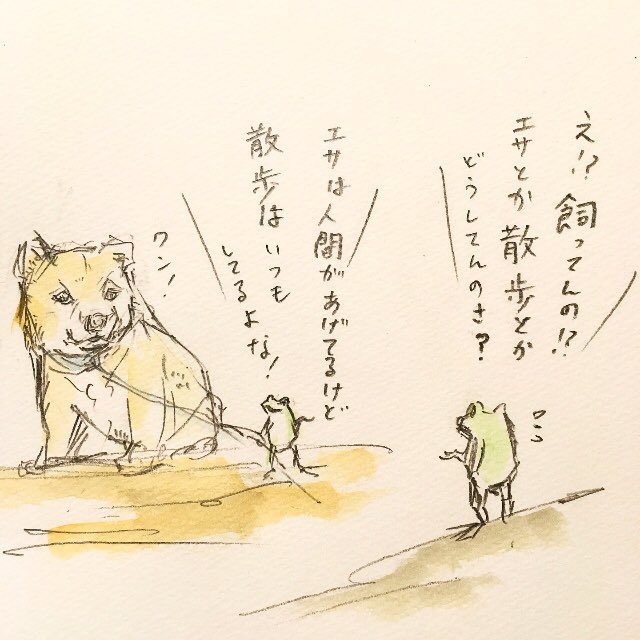 え!? 飼ってんの!?
エサとか散歩とか
どうしてんのさ?
エサは人間があげてるけど
散歩はいつも
してるよな!
ワン!